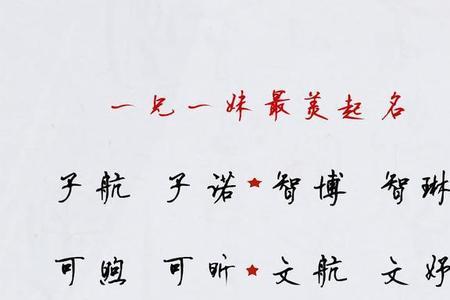 一兄一妹最美起名
子航 子诺★智博 智琳
可煦 可昕★文航 文妤